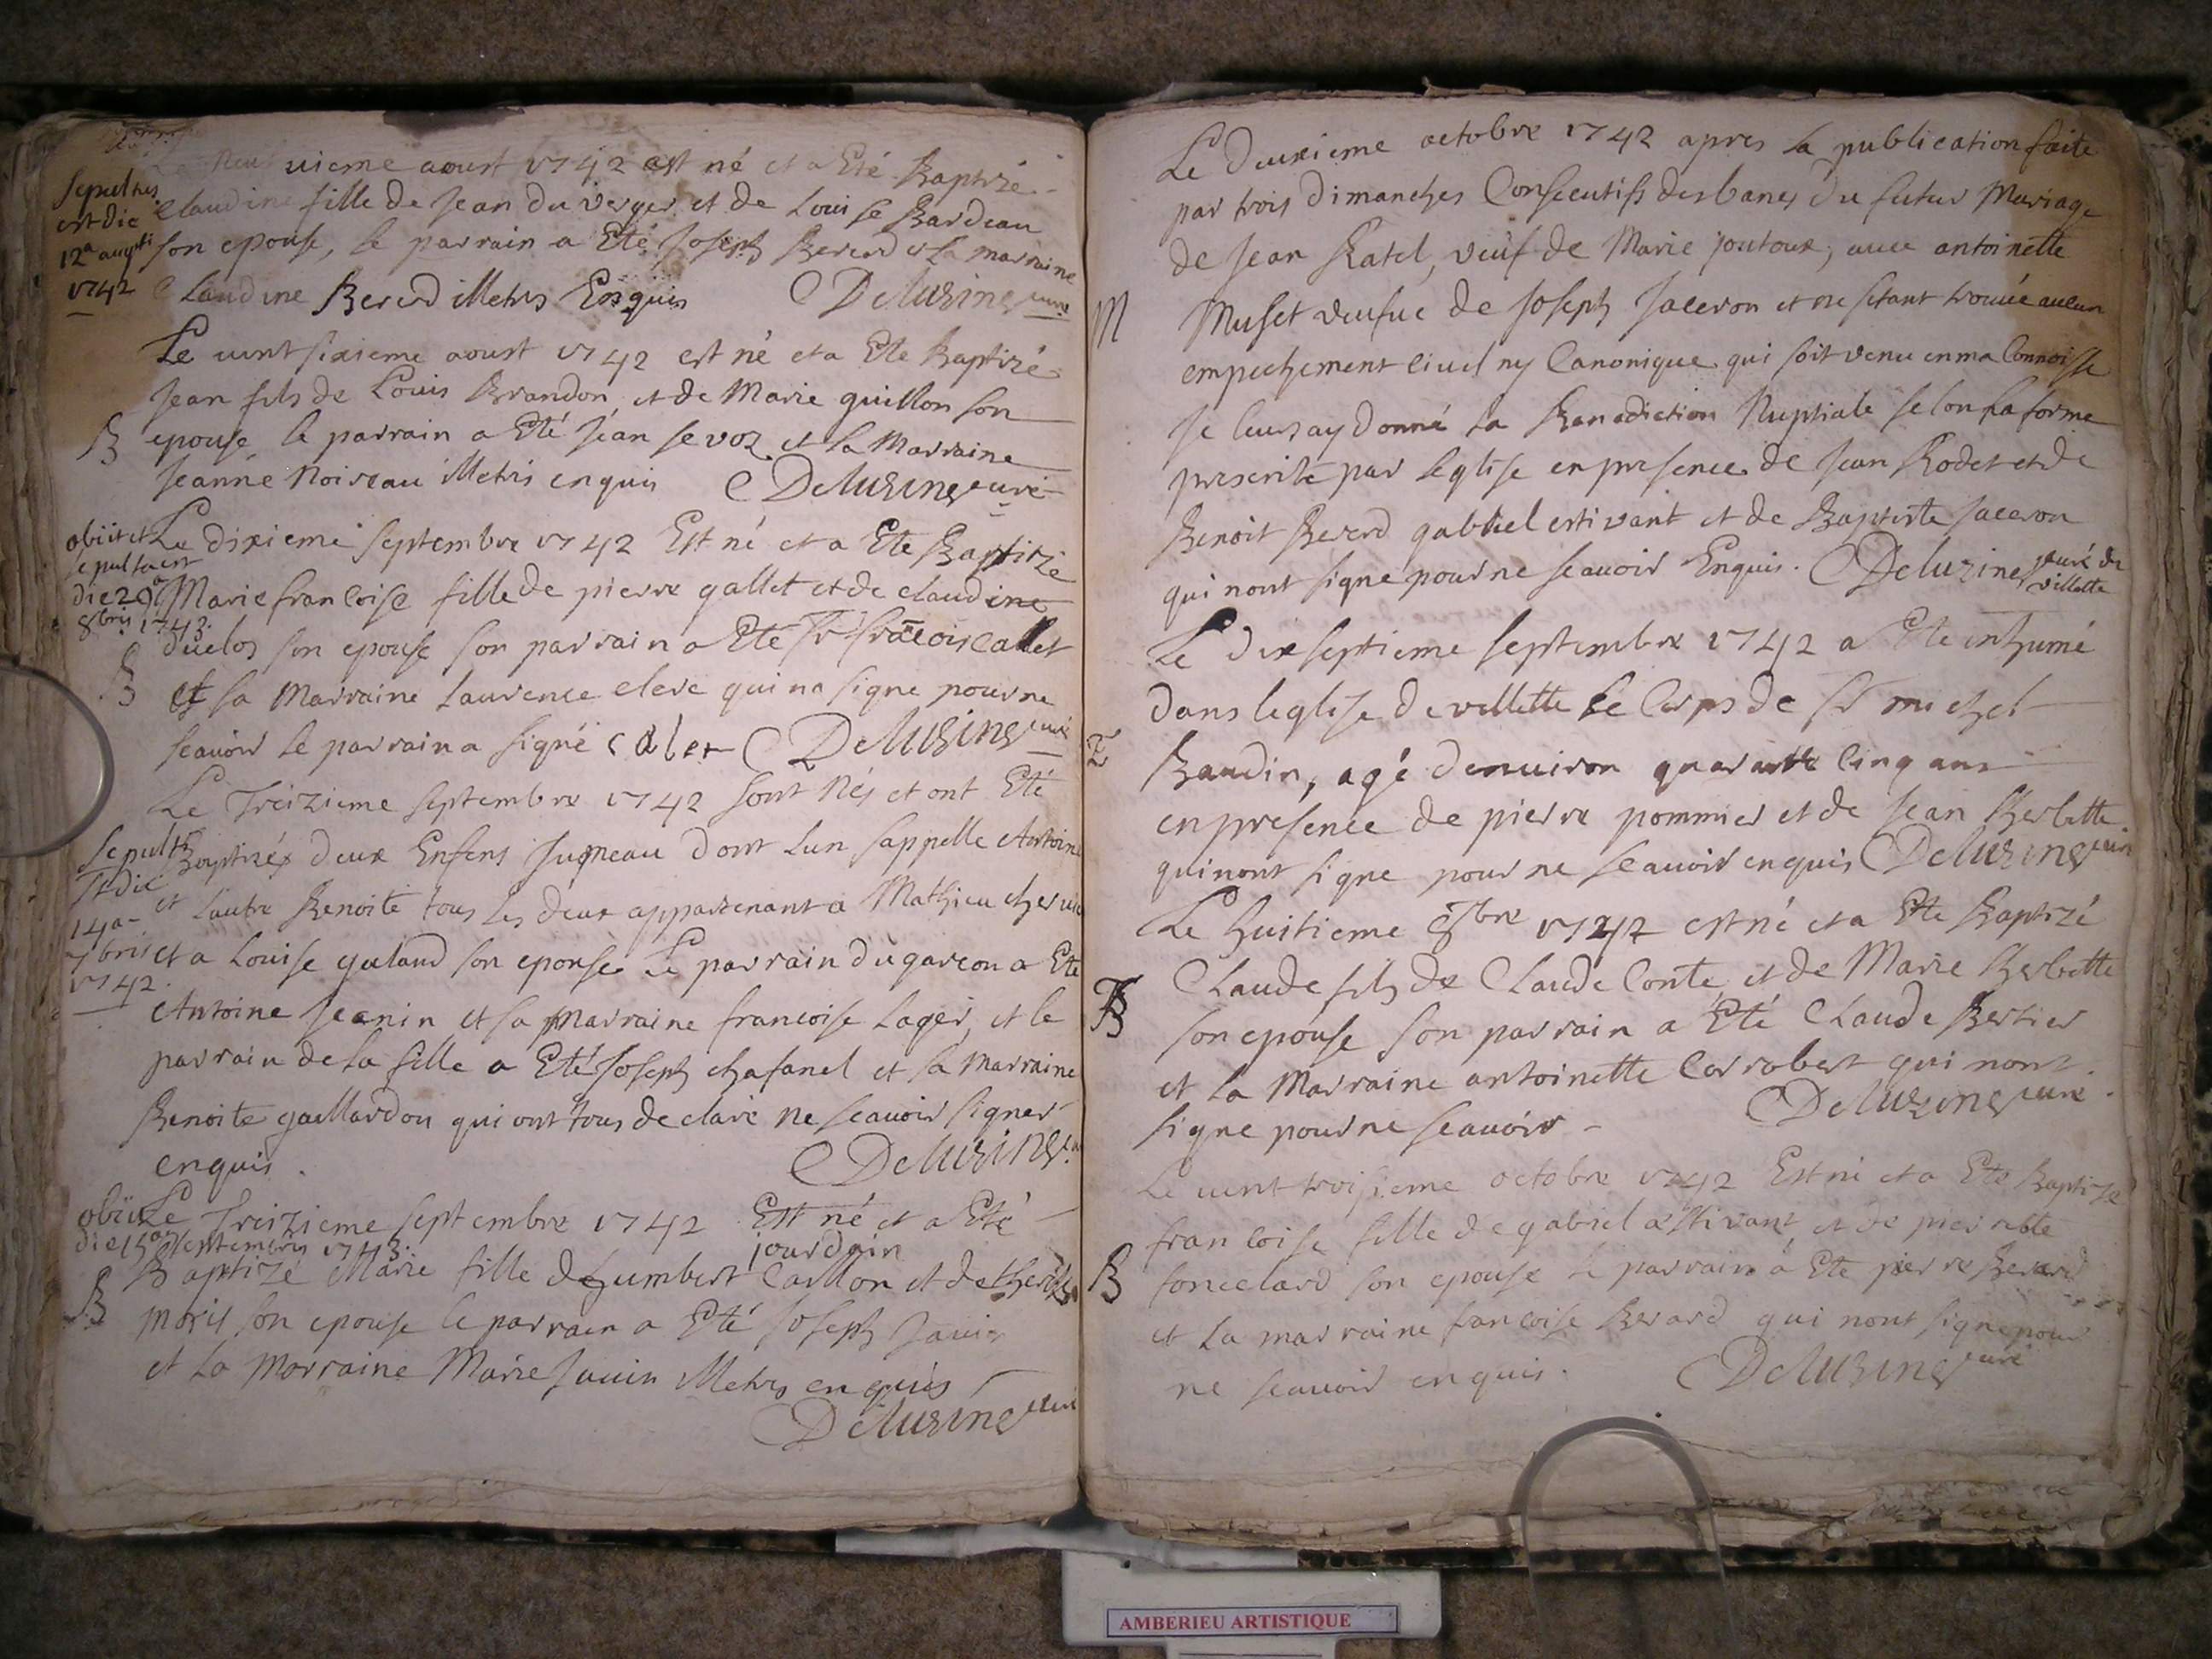 Sepultus
est die
12a augsti
1742
Le neufuieme aoust 1742 est né et a Eté Baptizé
Claudine fille de Jean du verger et de Louise Bardeau
son epouse, le parrain a Eté Joseph Bererd et la marraine
Claudine Bererd illetrés Enquis Deluzine curé
Le uint sixieme aoust 1742 est né et a Ete Baptizé
Jean fils de Louis Brandon et de Marie guillon son
B
epouse le parrain a Eté Jéan sevoz et la Marraine
Jeanne Noireau illetrés enquis Deluzine curé
obiit et
sepulta est
die 29a
8bris 1743.
B
Le dixieme septembre 1742 Est né et a Ete Baptizé
Marie francoise fille de pierre gallet et de claudine
duclos son epouse son parrain a Ete Sr francois calet
et sa Marraine Laurence clerc qui na signe pour ne
scauoir le parrain a signé calet Deluzine curé
Le Treizieme septembre 1742 sont Nés et ont Eté
Sepultus
est die
14a
7bris
1742.
Baptizés deux Enfens Jumeau dont lun sappelle Antoine
et lautre Benoite tous les deux appartenant a Mathieu
et a Louise galand son epouse Le parrain du garcon a Ete
Antoine Jeanin et sa Marraine francoise Lager, et le
parrain de la fille a Eté Joseph chafanel et la marraine
Benoite gaillardon qui ont tous declaré ne scauoir signer
enquis. Deluzine
obiit
die 15a septembris 1743.
B
Le Treizieme septembre 1742 Est né et a Eté
jourdain
Baptizé Marie fille de humbert Caillon et de
moris son epouse le parrain a Eté Joseph Jauin
et la Marraine Marie Jauin illetrés enquis
Deluzine curé
Le Deuxieme octobre 1742 apres la publication faite
par trois Dimanches Consecutifs des bancs du futur Mariage
de Jean Ratel, veuf de Marie joutoux, auec antoinette
M
Muset veufue de Joseph Jaceron et ne setant trouuée aucun
empechement ciuil ny Canonique qui soit venu en ma Connoisse
Je leurs ay donné la Benediction Nuptiale selon la forme
prescrite par leglise en presence de Jean Rodet et de
Benoit Bererd gabriel estivant et de Baptiste Jaceron
qui nont signe pour ne scauoir Enquis. Deluzine curé de
villette
Le dixseptieme septembre 1742 a Ete inhumé
dans leglise de villette le Corps de Sr michel
Baudin, agé denuiron quarante Cinq ans
en presence de pierre pommier et de Jean Berlette
qui nont signe pour ne scauoir enquis Deluzine curé
Le huitieme 8bre 1742 est né et a Ete Baptizé
B
Claude fils de Claude Conte et de Marie Berlette
son epouse son parrain a Eté Claude Bertier
et la Marraine antoinette Corrobert qui nont
signe pour ne scauoir Deluzine curé
Le uint troisieme octobre 1742 Est né et a Ete Baptizé
francoise fille de gabriel estivant et de pierrette
B
foncelard son epouse le parrain a Ete pierre Berard
et la marraine francoise Berard qui nont signe pour
ne scauoir enquis. Deluzine curé
AMBERIEU ARTISTIQUE